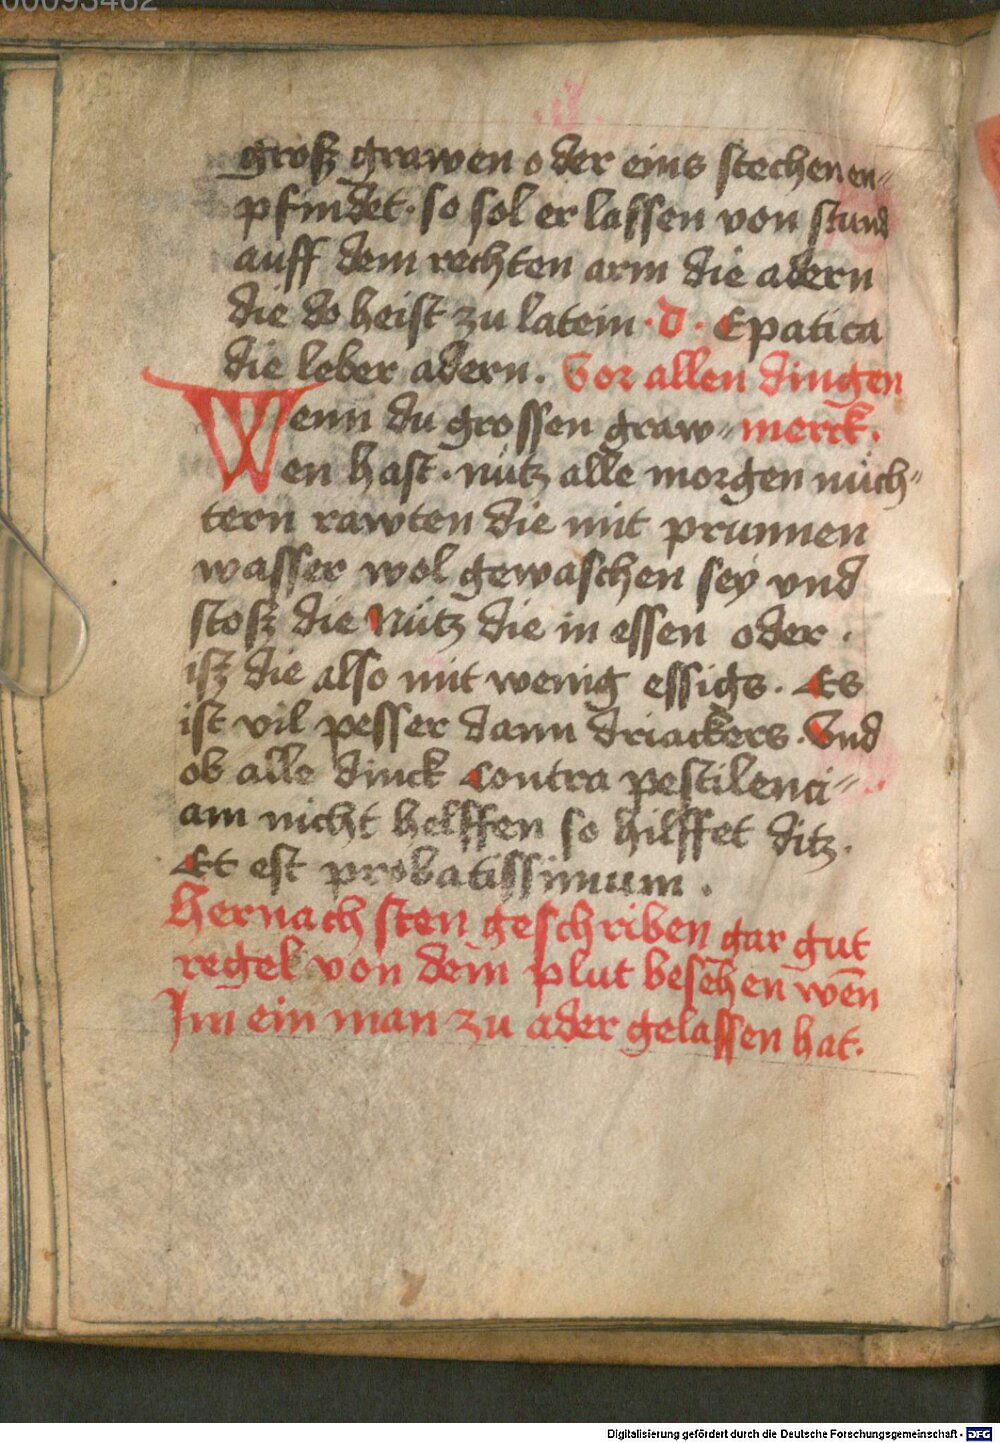 00093462
groß grawen oder eins stechen en„
pfindet · so sol er lassen von stund
auff dem rechten arm die adern
die do heist zu latein · d · Epatica
die leber adern . Vor allen dingen
Wenn du grossen graw„ merck .
en hast · nutz alle morgen nüch„
tern rawten die mit prunnen
wasser wol gewaschen sey vnd
stoß die Nütz die in essen oder .
iß die also mit wenig essigs . Es
ist vil pesser dann driackers . Vnd
ob alle dinck Contra pestilenci„
am nicht helffen so hilffet ditz .
Et est probatissimum .
Hernach sten geschriben gar gut
regel von dem plut besehen wēn
Im ein man zu ader gelassen hat .
Digitalisierung gefördert durch die Deutsche Forschungsgemeinschaft - DFG